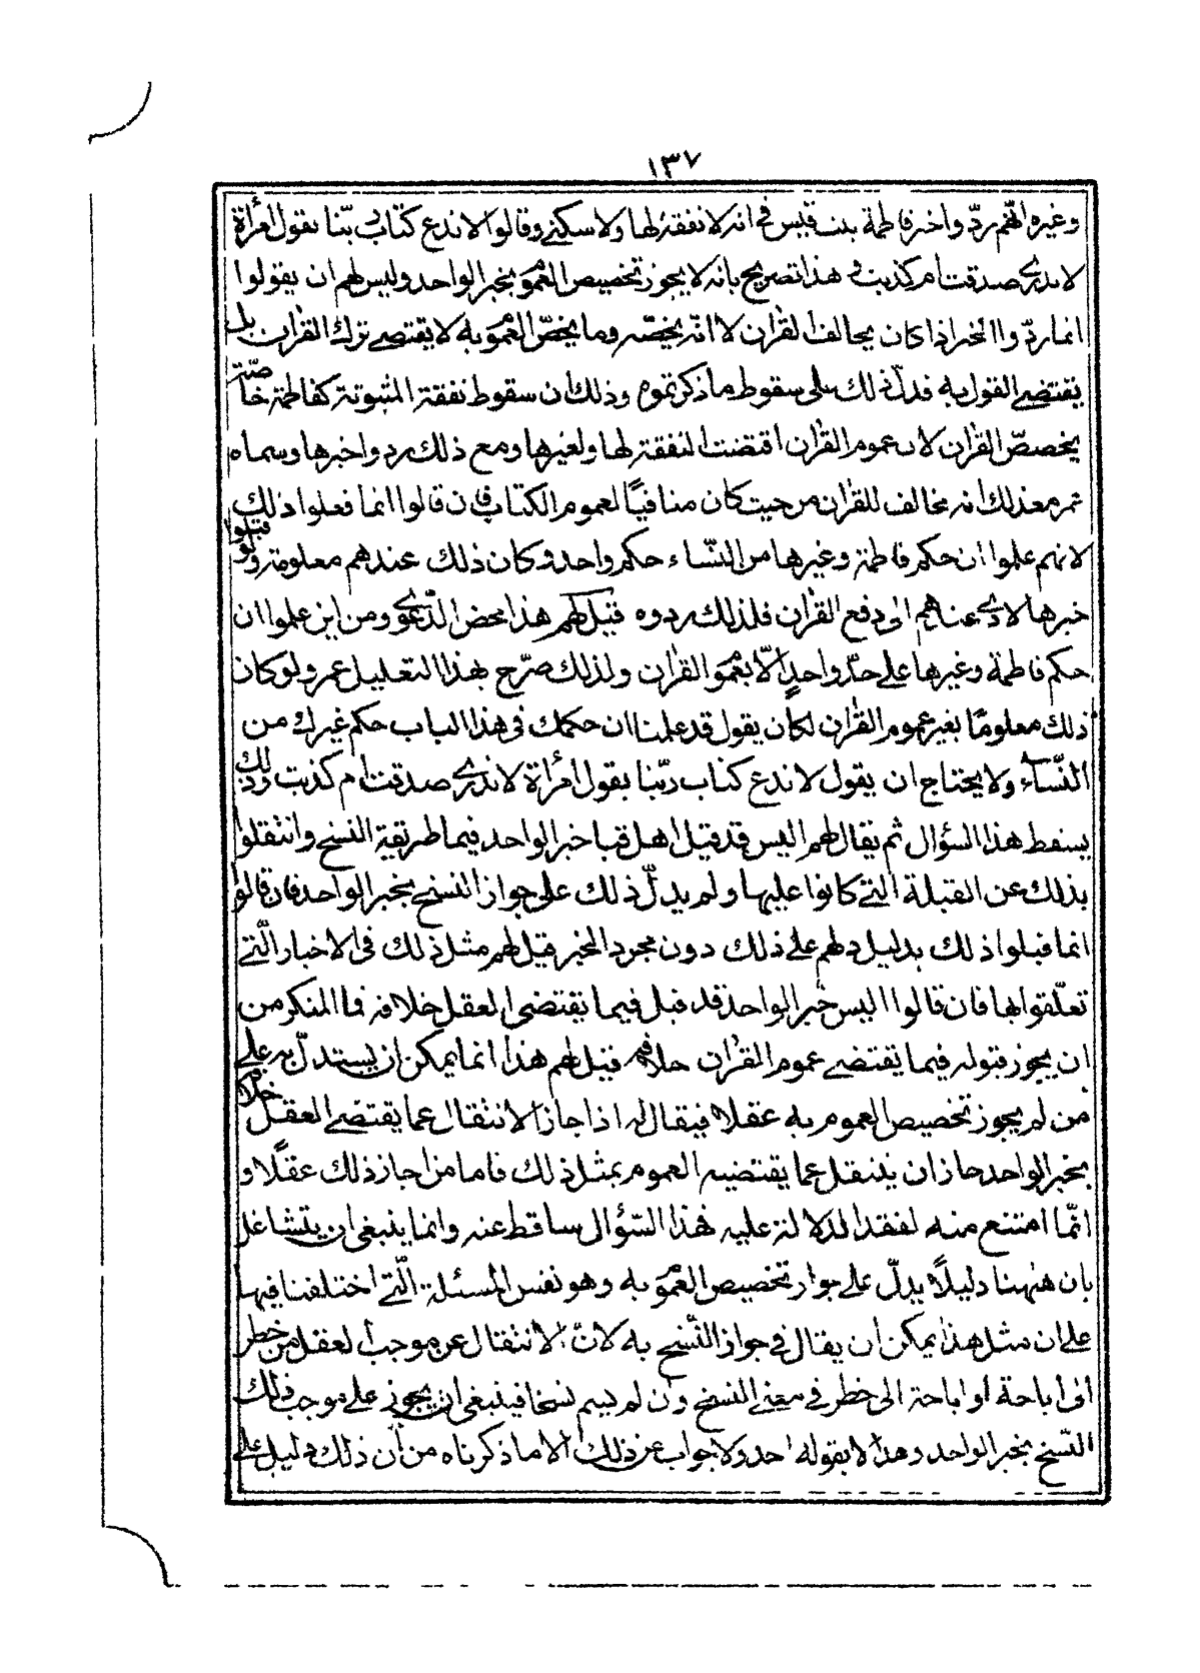 ١٣٧
وغيره انهم ردّوا خبر فاطمة بنت قيس فى انه لا نفقة لها ولا سكنى وقالوا لا ندع كتاب ربّنا بقول امرأة
لا ندرى صدقت ام كذبت و هذا تصريح بانه لا يجوز تخصيص العموم بخبر الواحد وليس لهم ان يقولوا
انما ردّوا الخبر اذا كان يخالف القرٰان لا انّه يخصّه وما يخصّ العموم به لا يقتضى ترك القرٰان بل
يقتضى القول به فدلّ ذلك على سقوط ما ذكرتموه وذلك ان سقوط نفقة المبتوتة كفاطمة خاصّة
يخصصّ القرٰان لان عموم القرٰان اقتضت النفقة لها ولغيرها ومع ذلك ردوا خبرها وسماه
عمر مع ذلك انه مخالف للقرٰان من حيث كان منافيًا لعموم الكتاب فان قالوا انما فعلوا ذلك
لانهم علموا ان حكم فاطمة وغيرها من النّساء حكم واحد وكان ذلك عندهم معلومة ولو قبلوا
خبرها لادى عندهم الى دفع القرٰان فلذلك ردوه قيل لهم هذا محض الدّعوى ومن اين علموا ان
حكم فاطمة وغيرها على حدّ واحدٍ الّا بعموم القرٰان ولذلك صرّح بهذا التعليل عمر ولو كان
ذلك معلومًا بغير عموم القرٰان لكان يقول قد علمنا ان حكمك فى هذا الباب حكم غيرك من
النّساء ولا يحتاج ان يقول لا ندع كتاب ربّنا بقول امرأة لا ندرى صدقت ام كذبت وذلك
يسقط هذا السؤال ثم يقال لهم اليس قد قبل اهل قبا خبر الواحد فيما طريقة النسخ وانتقلوا
بذلك عن القبلة الّتى كانوا عليها ولم يدلّ ذلك على جواز النسخ بخبر الواحد فان قالوا
انما قبلوا ذلك بدليل دلهم على ذلك دون مجرد الخبر قيل لهم مثل ذلك فى الاخبار الّتى
تعلّقوا بها فان قالوا اليس خبر الواحد قد قبل فيما يقتضى العقل خلافه فما المنكر من
ان يجوز قبوله فيما يقتضى عموم القرٰان خلافه قيل لهم هذا انما يمكن ان يستدلّ به على
من لم يجوز تخصيص العموم به عقلا فيقال له اذا جاز الانتقال عما يقتضى العقل خلافه
بخبر الواحد جاز ان ينتقل عما يقتضيه العموم بمثل ذلك فاما من اجاز ذلك عقلًا و
انّما امتنع منه لفقد الدلالة عليه فهذا السّؤال ساقط عنه وانما ينبغى ان يتشاغل
بان هٰهنا دليلًا يدلّ على جواز تخصيص العموم به وهو نفس المسئلة الّتى اختلفنا فيها
على ان مثل هذا يمكن ان يقال فى جواز النّسخ به لانّ الانتقال عن موجب العقل من خطر
الى اباحة او اباحة الى خطر فى معنى النسخ وان لم يسم نسخا فينبغى ان يجوز على موجب ذلك
النّسخ بخبر الواحد وهذا لا يقوله احد ولا جواب عن ذلك الا ما ذكرناه من ان ذلك دليل على